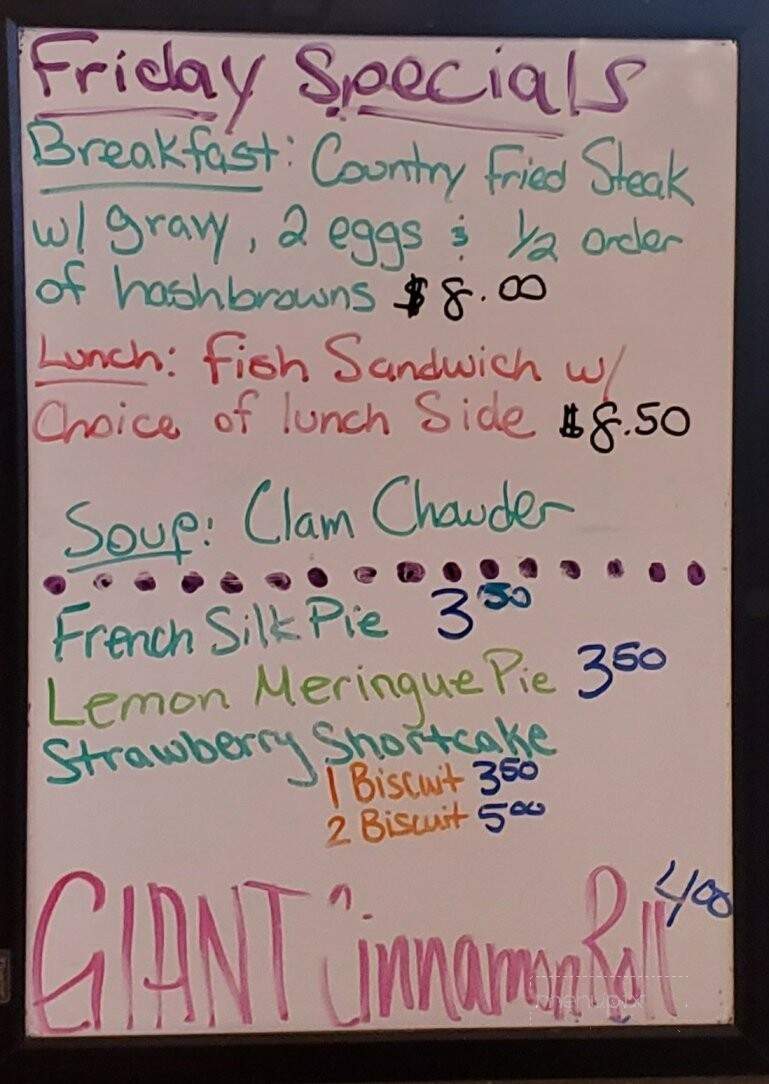 Friday Specials
Breakfast: Country Fried Steak
w/ gravy, 2 eggs & 1/2 order
of hashbrowns $8.00
Lunch: Fish Sandwich w/
Choice of lunch Side $8.50
Soup: Clam Chowder
French Silk Pie 3.50
Lemon Meringue Pie 3.50
Strawberry Shortcake
1 Biscuit 3.50
2 Biscuit 5.00
GIANT Cinnamon Roll 4.00
menupix